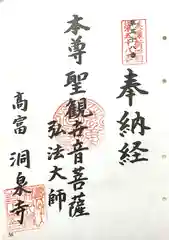 奉納経
本尊聖観世音菩薩
弘法大師
高富
洞泉寺